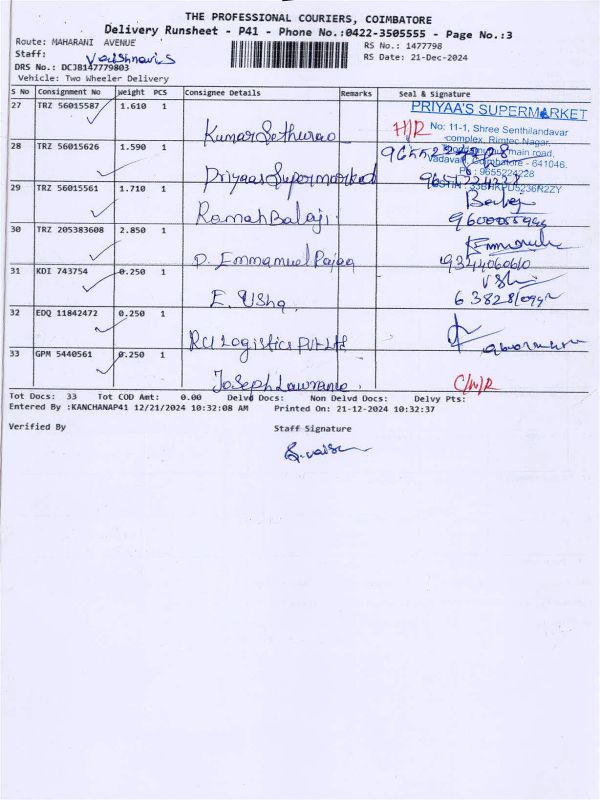 THE PROFESSIONAL COURIERS, COIMBATORE
Delivery Runsheet - P41 - Phone No.:0422-3505555 - Page No.:3
Route: MAHARANI AVENUE
RS No.: 1477798
Staff: Vaishnavi S
RS Date: 21-Dec-2024
DRS No.: DCJB147779803
Vehicle: Two Wheeler Delivery
S No Consignment No Weight PCS Consignee Details Remarks Seal & Signature
27 TRZ 56015587 1.610 1 Kumar Sethurao H/R
PRIYAA'S SUPERMARKET
No: 11-1, Shree Senthilandavar
complex, Rimtec Nagar,
main road,
Coimbatore - 641046.
9655224228
28 TRZ 56015626 1.590 1 Priyaas Supermarket
29 TRZ 56015561 1.710 1 Ramah Balaji Balaji
30 TRZ 205383608 2.850 1 D. Emmanuel Rajaa 9344060610
31 KDI 743754 0.250 1 E. Usha
32 EDQ 11842472 0.250 1 RCI Logistics Pvt Ltd
33 GPM 5440561 0.250 1 Joseph Lawrance
Tot Docs: 33 Tot COD Amt: 0.00 Delvd Docs: Non Delvd Docs: Delvy Pts:
Entered By :KANCHANAP41 12/21/2024 10:32:08 AM Printed On: 21-12-2024 10:32:37
Verified By
Staff Signature